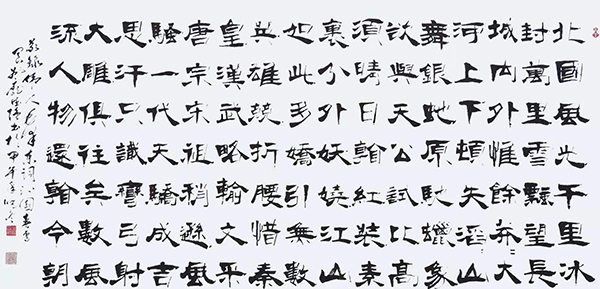 北國風光千里冰
封萬里雪飄望長
城內外惟餘莽大
河上下頓失滔山
舞銀蛇原馳蠟象
欲與天公試比高
須晴日看紅裝素
裹分外妖嬈江山
如此多嬌引無數
英雄競折腰惜秦
皇漢武略輸文采
唐宗宋祖稍遜風
騷一代天驕成吉
思汗只識彎弓射
大雕俱往矣數風
流人物還看今朝
人毛澤東詞沁園春雪
書於甲午年